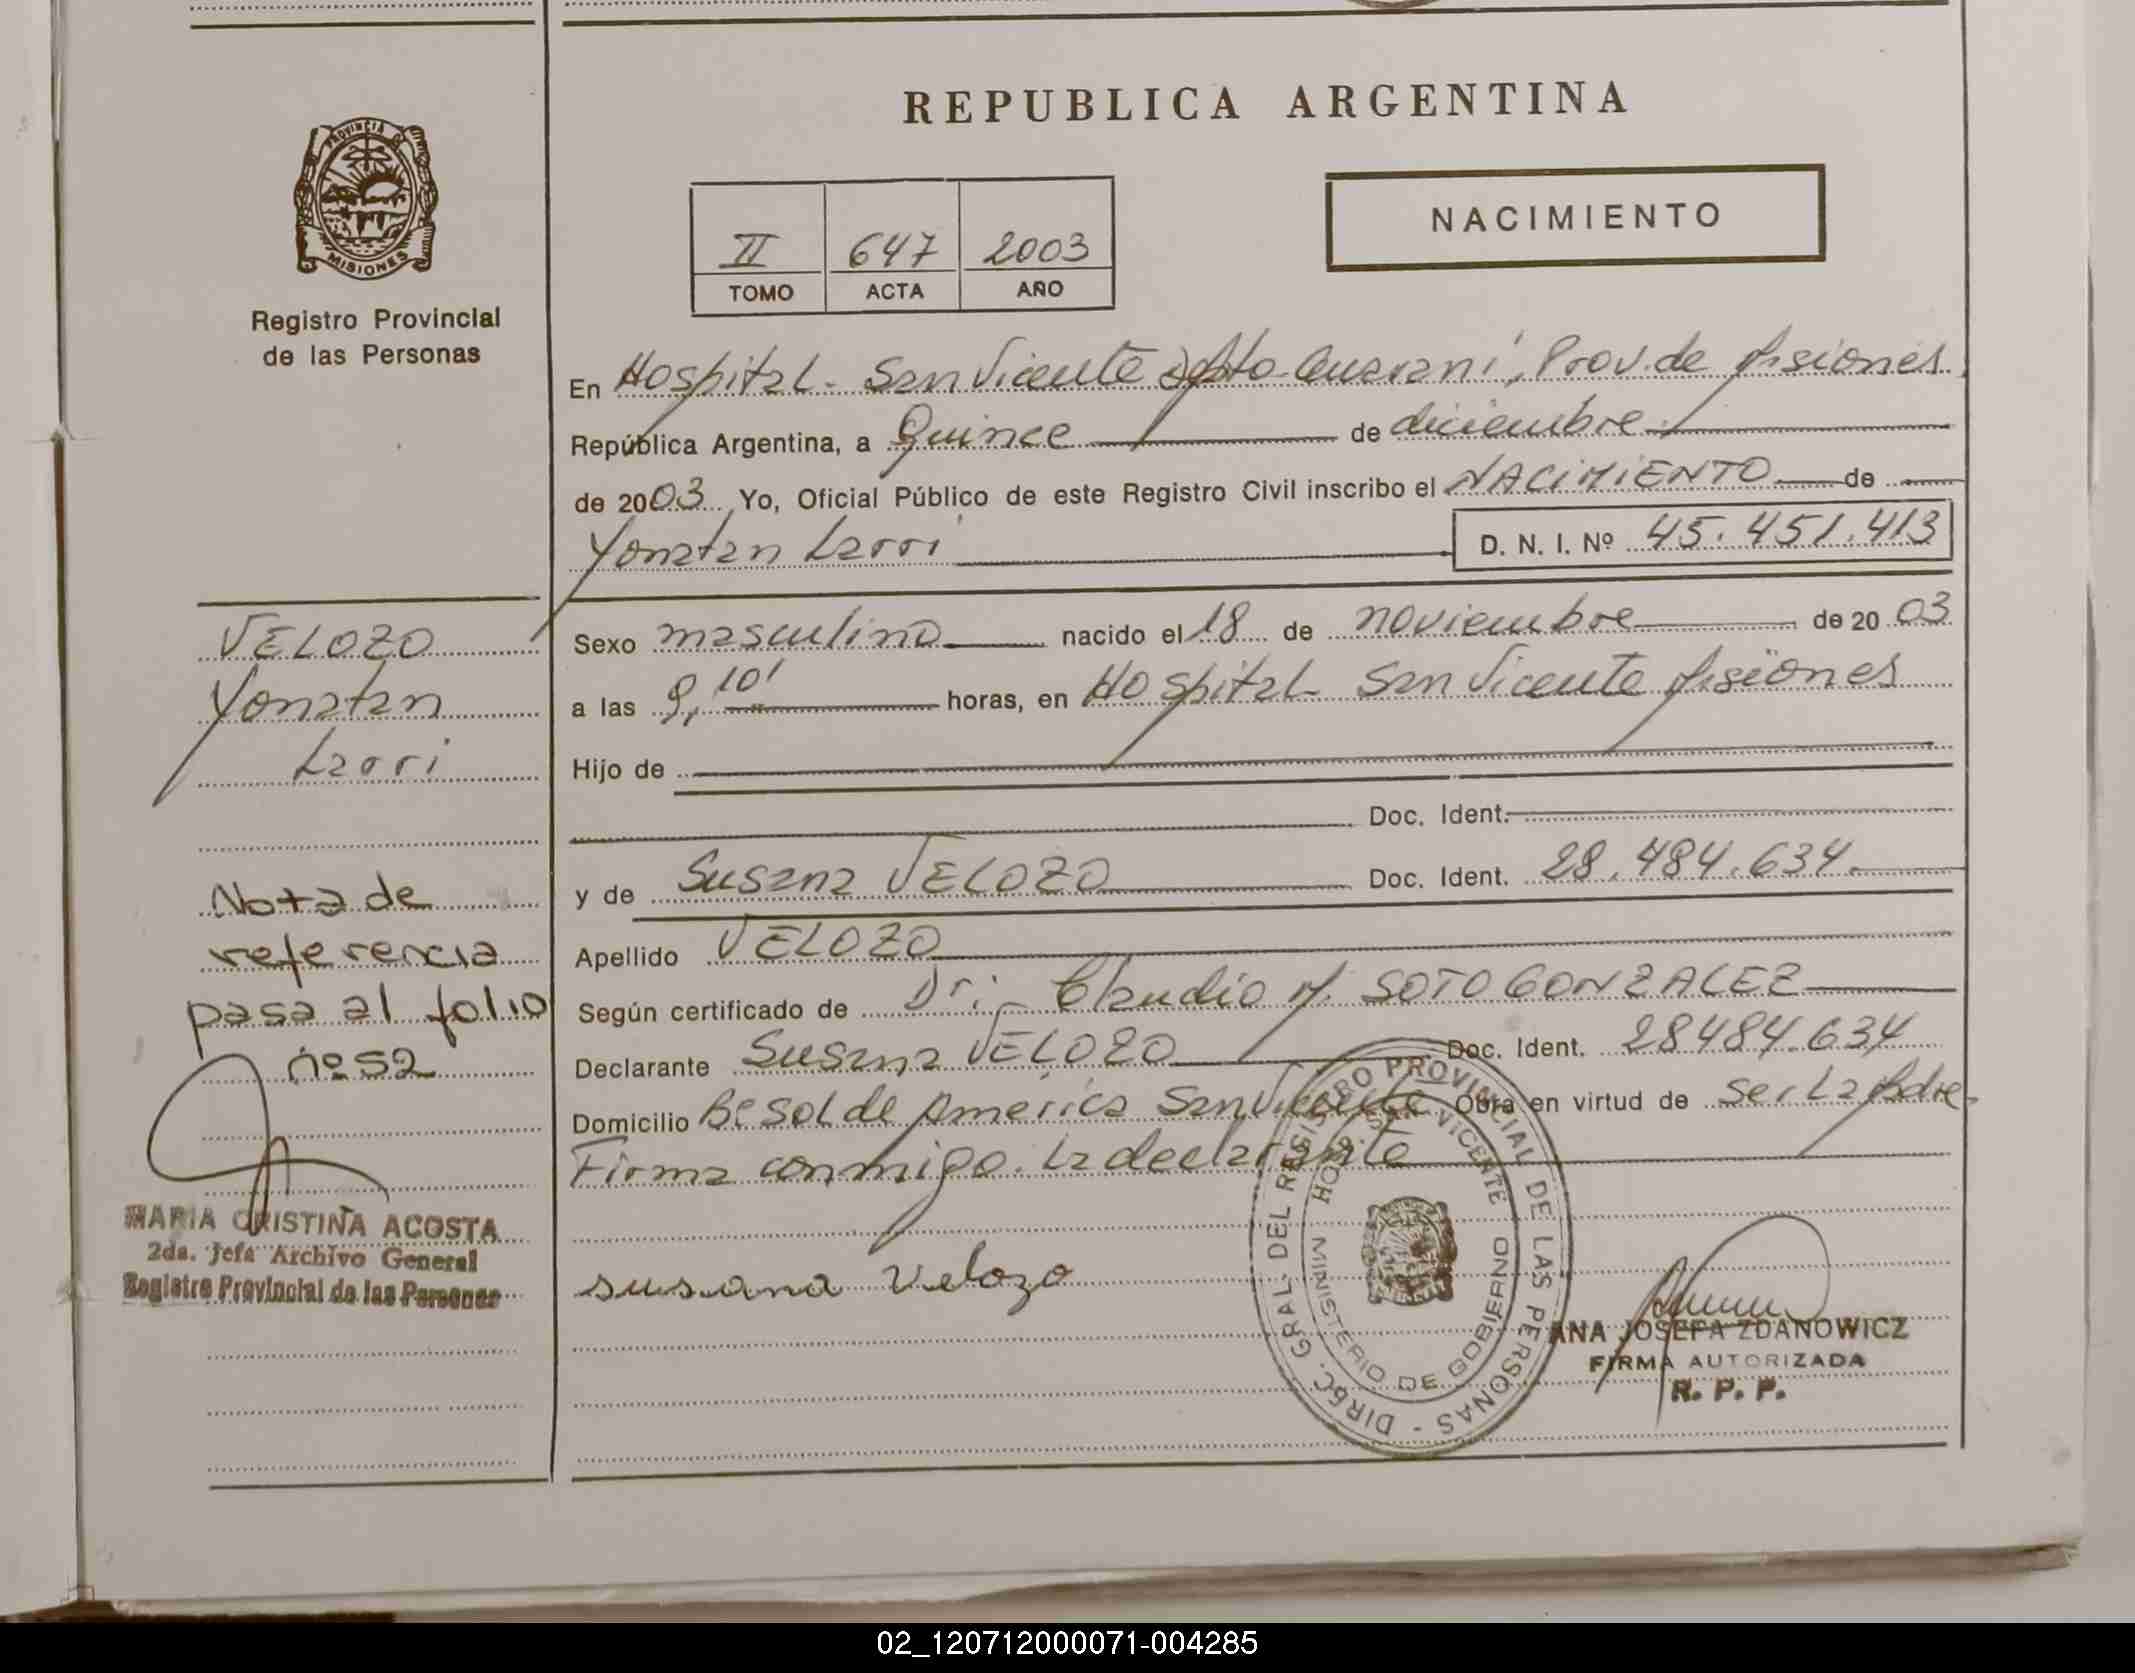 REPUBLICA ARGENTINA
PROVINCIA DE
MISIONES
Registro Provincial
de las Personas
NACIMIENTO
II 647 2003
TOMO ACTA AÑO
En Hospital - San Vicente Dpto Guaraní, Prov. de Misiones.
República Argentina, a Quince de diciembre
de 2003 Yo, Oficial Público de este Registro Civil inscribo el NACIMIENTO de
Yonatan Larri D. N. I. Nº 45.451.413
Sexo masculino nacido el 18 de noviembre de 2003
a las 9,10' horas, en Hospital San Vicente Misiones
Hijo de
Doc. Ident.
y de Susana VELOZO Doc. Ident. 28.484.634.
Apellido VELOZO
Según certificado de Dr. Claudio M. SOTO GONZALEZ
Declarante Susana VELOZO Doc. Ident. 28484.634
Domicilio Bº Sol de America San Vicente Obra en virtud de ser La Madre.
Firma conmigo. La declarante
susana Velozo
VELOZO
Yonatan
Larri
Nota de
referencia
pasa al folio
nº 52
MARIA CRISTINA ACOSTA
2da. Jefa Archivo General
Registro Provincial de las Personas
DIREC. GRAL. DEL REGISTRO PROVINCIAL DE LAS PERSONAS -
HOSP. SAN VICENTE
MINISTERIO DE GOBIERNO
ANA JOSEFA ZDANOWICZ
FIRMA AUTORIZADA
R. P. P.
02_120712000071-004285